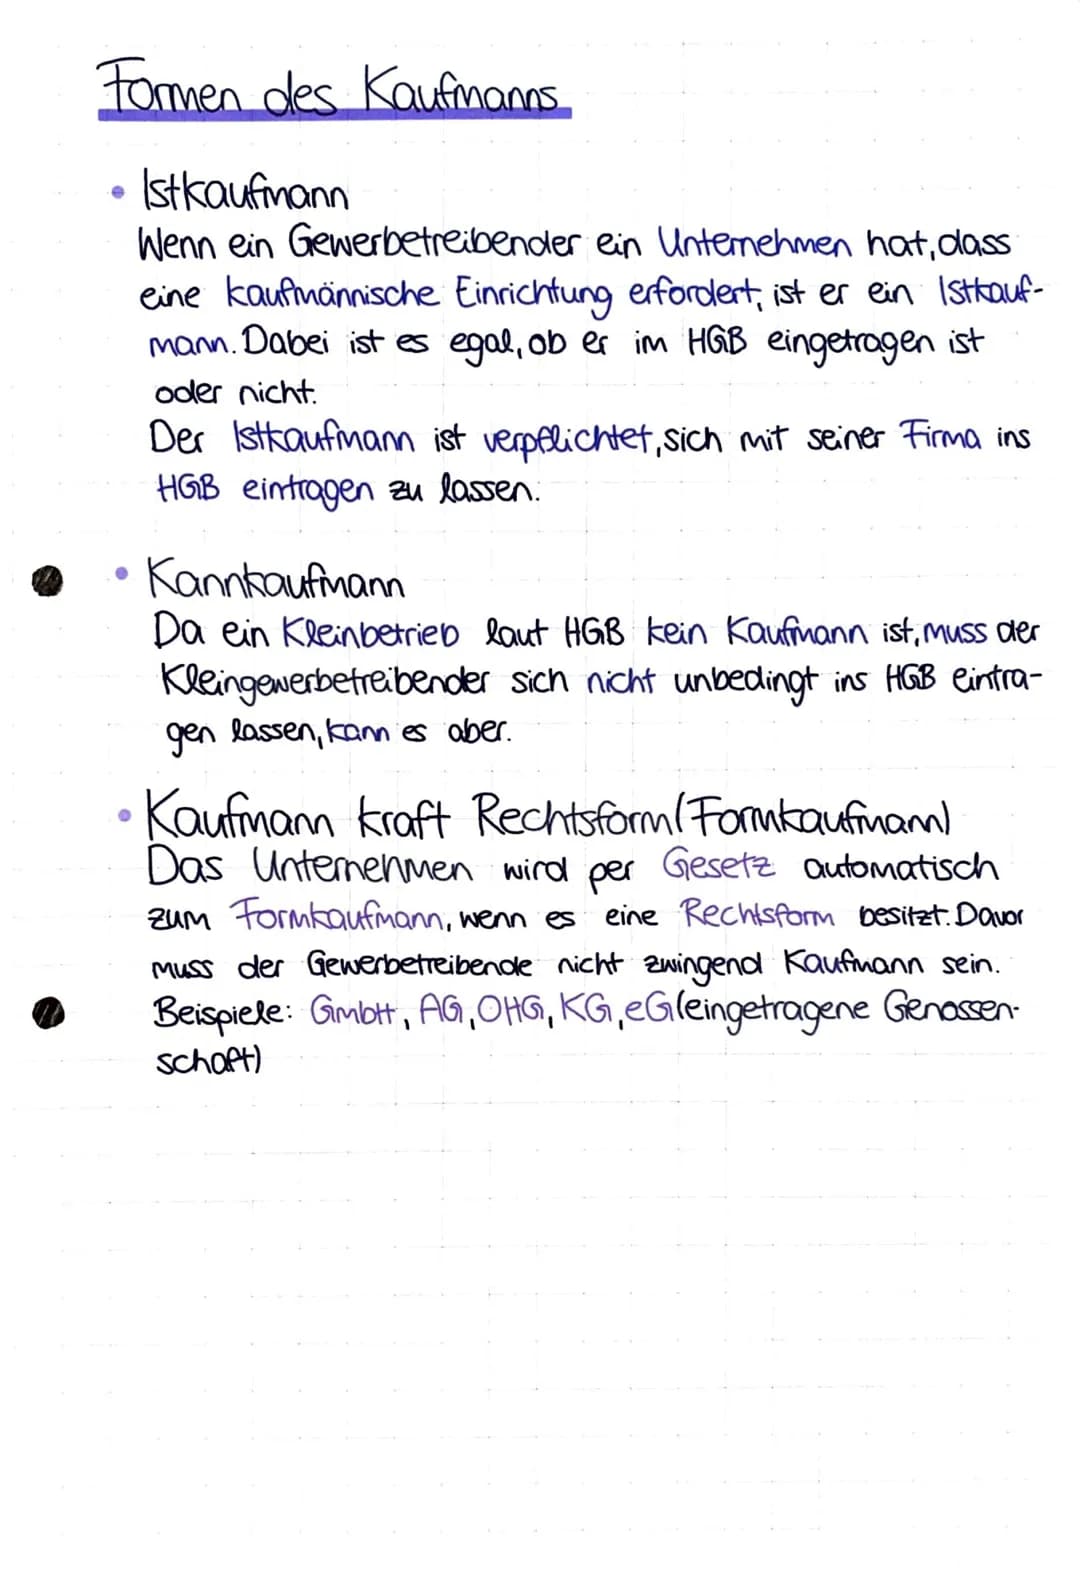 Formen des Kaufmanns
• Istkaufmann
Wenn ein Gewerbetreibender ein Unternehmen hat, dass
eine kaufmännische Einrichtung erfordert, ist er ein Istkauf-
mann. Dabei ist es egal, ob er im HGB eingetragen ist
oder nicht.
Der Istkaufmann ist verpflichtet, sich mit seiner Firma ins
HGB eintragen zu lassen.
• Kannkaufmann
Da ein Kleinbetrieb laut HGB kein Kaufmann ist, muss der
Kleingewerbetreibender sich nicht unbedingt ins HGB eintra-
gen lassen, kann es aber.
• Kaufmann kraft Rechtsform (Formkaufmann)
Das Unternehmen wird per Gesetz automatisch
zum Formkaufmann, wenn es eine Rechtsform besitzt. Davor
muss der Gewerbetreibende nicht zwingend Kaufmann sein.
Beispiele: GmbH, AG, OHG, KG, eG (eingetragene Genossen-
schaft)